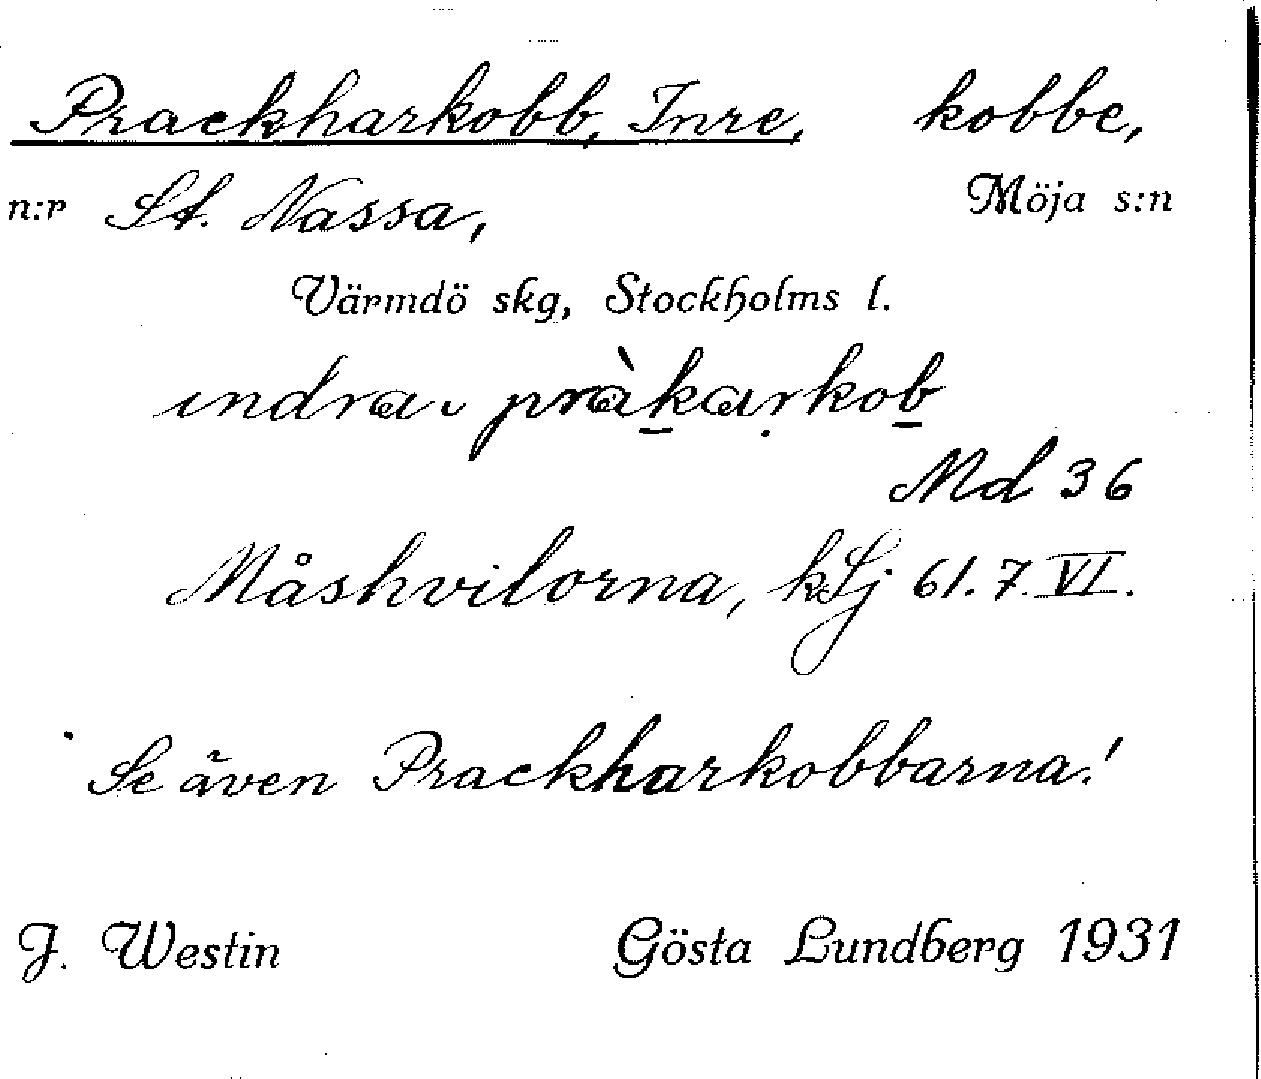 Prackharkobb, Inre, kobbe,
n:r St. Nassa, Möja s:n
Värmdö skg, Stockholms l.
ındra pràkarkob
Md 36
Måshvilorna, kSj 61.7.VI.
Se även Prackharkobbarna!
J. Westin Gösta Lundberg 1931